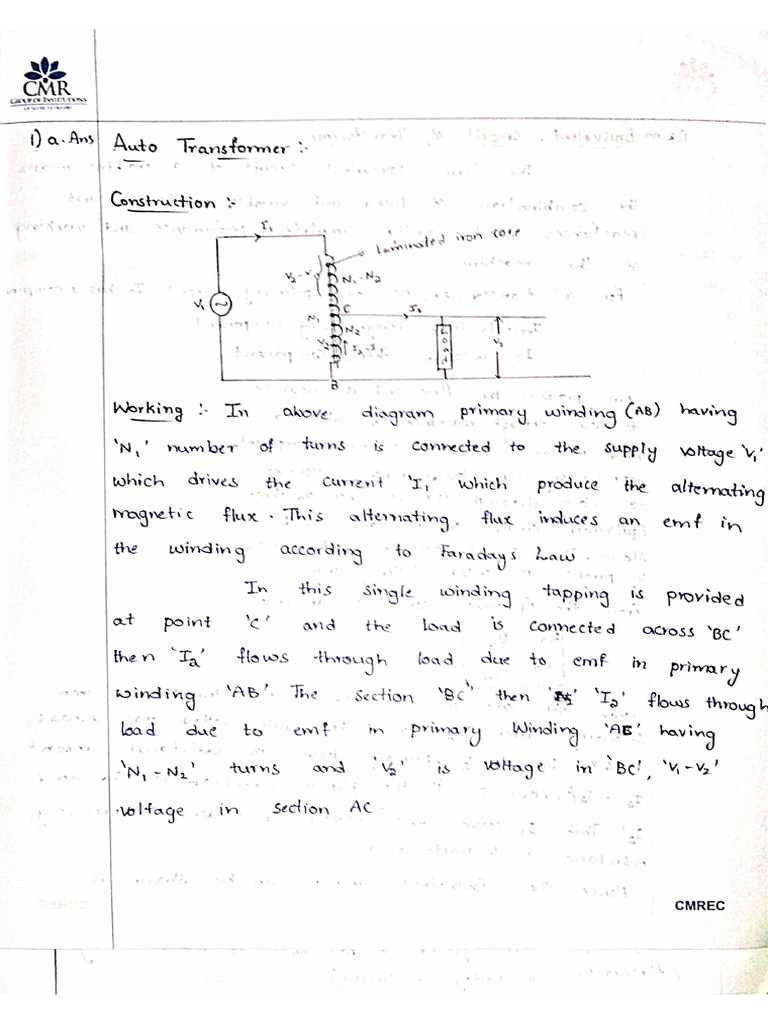 CMR
GROUP OF INSTITUTIONS
1) a. Ans Auto Transformer :-
Construction :-
I₁
Laminated iron core
N₁-N₂
V₁
C
I₂
N₁
N₂
V₂
I₂-I₁
LOAD
V₂
B
Working :- In above diagram primary winding (AB) having
'N₁' number of turns is connected to the supply voltage 'V₁'
which drives the current 'I₁' which produce the alternating
magnetic flux. This alternating flux induces an emf in
the winding according to Faradays Law.
In this single winding tapping is provided
at point 'C' and the load is connected across 'BC'
then 'I₂' flows through load due to emf in primary
winding 'AB'. The section 'BC' then 'I₂' flows through
load due to emf in primary Winding 'AB' having
'N₁-N₂' turns and 'V₂' is voltage in 'BC', 'V₁-V₂'
voltage in section AC
CMREC